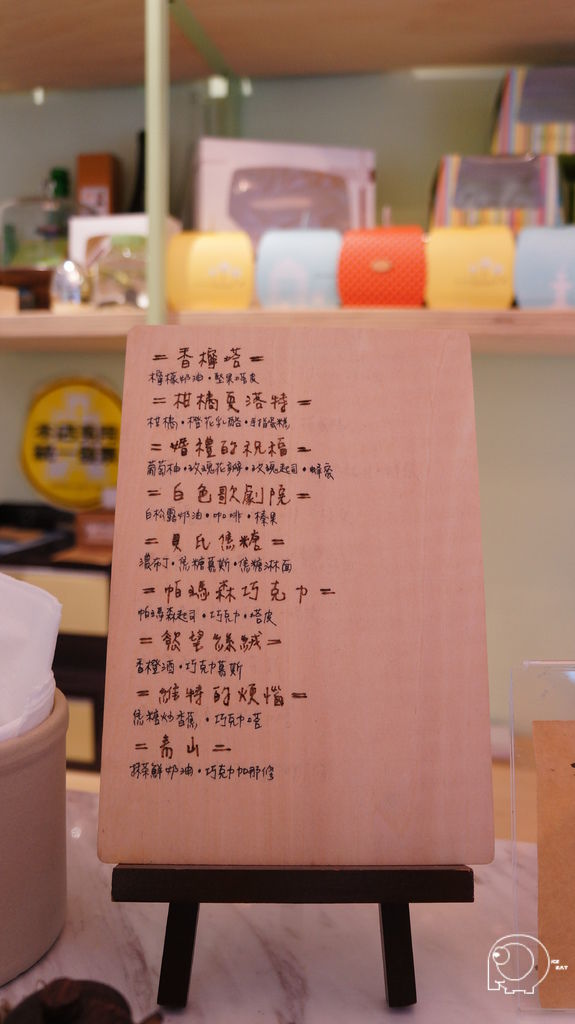 = 香檸塔 =
檸檬奶油・堅果塔皮
= 柑橘夏洛特 =
柑橘・橙花乳酪・手指蛋糕
= 婚禮的祝福 =
葡萄柚・玫瑰花多酚・玫瑰起司・蜂蜜
= 白色歌劇院 =
白松露奶油・咖啡・榛果
= 貝氏焦糖 =
濃布丁・焦糖慕斯・焦糖淋面
= 帕瑪森巧克力 =
帕瑪森起司・巧克力・塔皮
= 慾望絲絨 =
香橙酒・巧克力慕斯
= 維特的煩惱 =
焦糖炒香蕉・巧克力塔
= 青山 =
抹茶鮮奶油・巧克力加那修
ICE
EAT